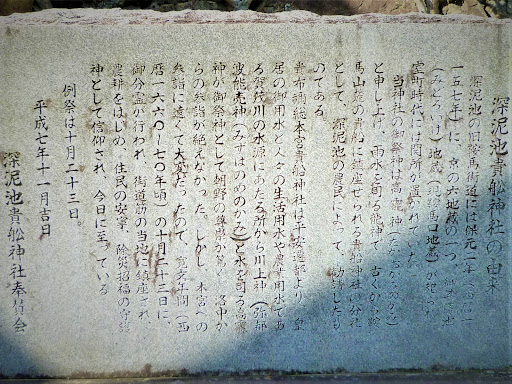 深泥池貴舩神社の由来
深泥池の旧鞍馬街道には保元二年(西暦一
一五七年)に、京の六地蔵の一つ、
(みどろいけ)地蔵(現鞍馬口地蔵)が祀ら
室町時代には関所が置かれていた。
当神社の御祭神は高龗神(たかおかみのかみ)
と申し上げ、雨水を司る龍神で、古くから鞍
馬山麓の貴船に鎮座せられる貴船神社の分社
として、深泥池の農民によって、勧請したも
のである。
貴布禰総本宮貴船神社は平安遷都より、皇
居の御用水と人々の生活用水や農業用水であ
る賀茂川の水源にあたる所から川上神(弥都
波能売神(みずはのめのかみ)と水を司る高龗
神が御祭神として朝野の尊崇が篤く、洛中か
らの参詣が絶えなかった。しかし、本宮への
参詣に遠くて大変だったので、寛文年間(西
暦一六六〇〜七〇年頃)の十月二十三日に、
御分霊が行われ、街道筋の当地に鎮座され、
農耕をはじめ、住民の安寧、除災招福の守護
神として信仰され、今日に至っている。
例祭は十月二十三日。
平成七年十一月吉日
深泥池貴舩神社奉賛会